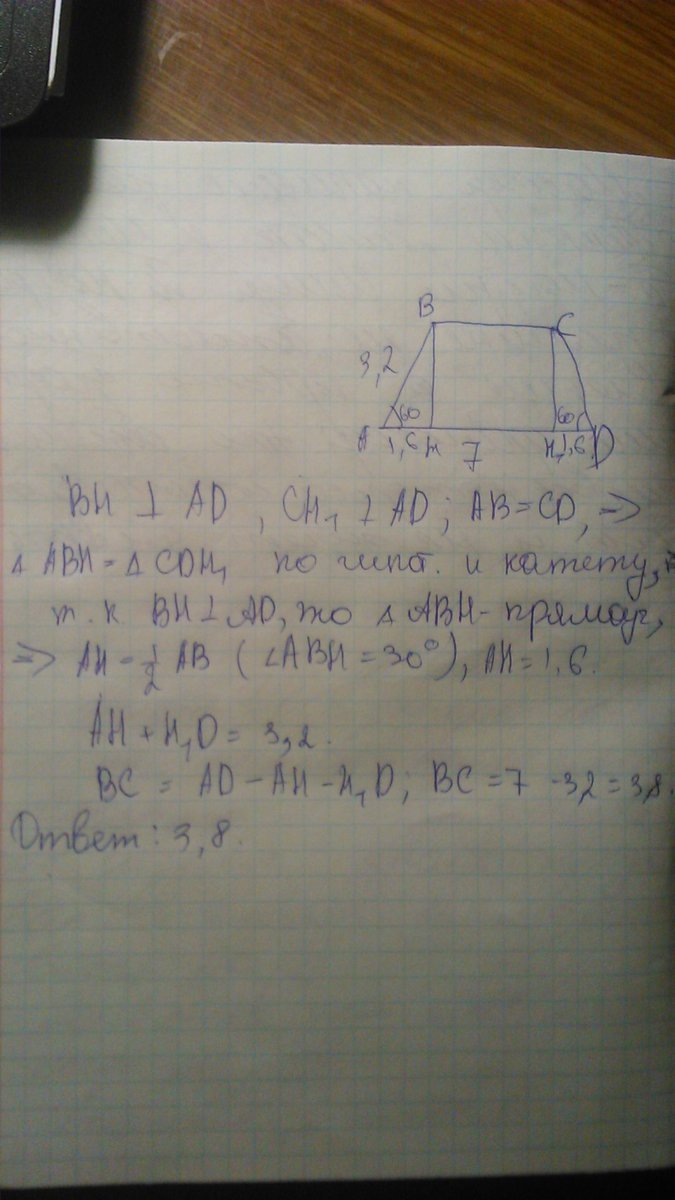 B
C
3,2
60
60
A 1,6 H 7 H₁ 1,6 D
BH ⊥ AD , CH₁ ⊥ AD ; AB = CD, =>
△ ABH = △ CDH₁ по гипот. и катету,
т.к BH ⊥ AD, то △ ABH - прямоуг,
=> AH = 1/2 AB ( ∠ABH = 30°), AH = 1,6.
AH + H₁D = 3,2.
BC = AD - AH - H₁D ; BC = 7 - 3,2 = 3,8.
Ответ : 3,8.